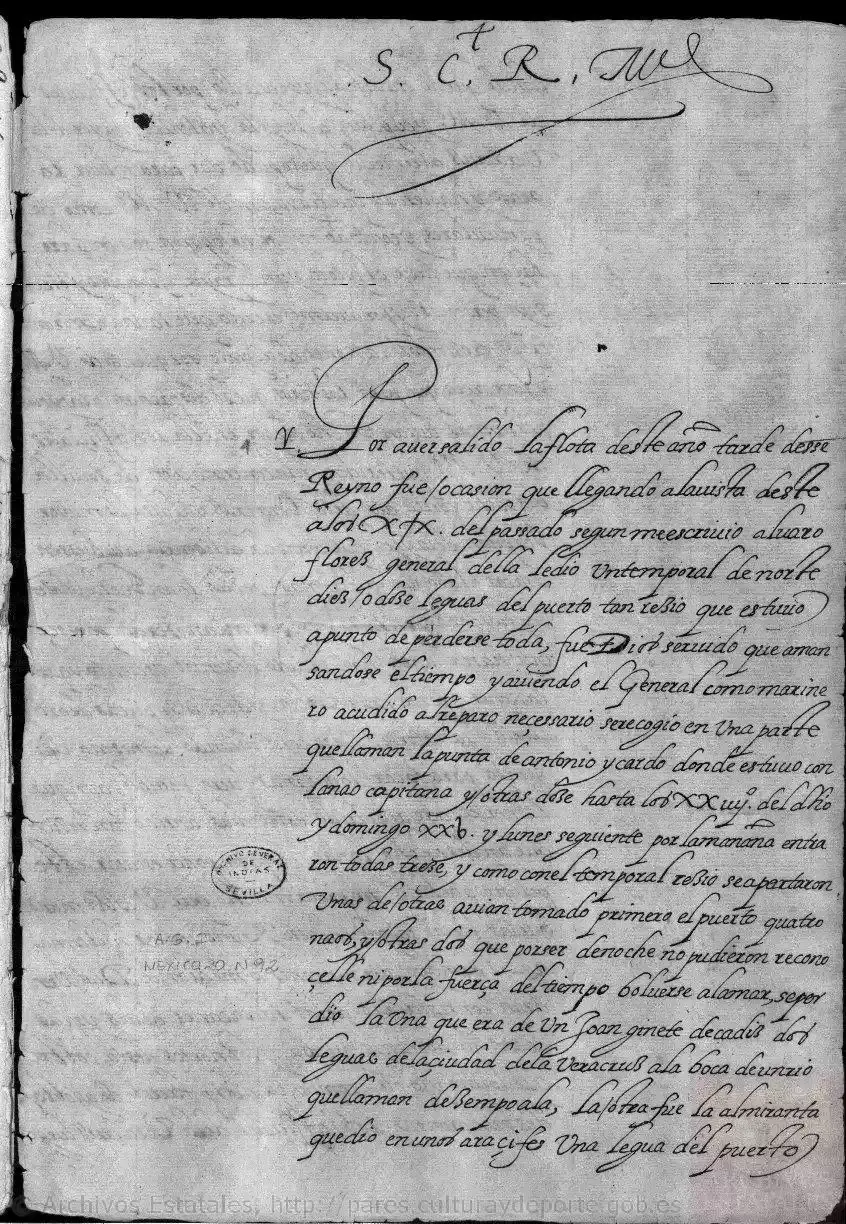 S. C. R. M
1. Por aver salido la flota deste año tarde desse
Reyno fue ocasion que llegando a la vista deste
a los XIX. del passado segun me escrivio alvaro
flores general della le dio un temporal de norte
diez o doze leguas del puerto tan rezio que estuvo
a punto de perderse toda, fue Dios servido que aman
sandose el tiempo y aviendo el General como marine
ro acudido al reparo neçessario se recogio en una parte
que llaman la punta de antonio y cardo donde estuvo con
la nao capitana y otras doze hasta los XXiiijº. del dho
y domingo XXv. y lunes seguiente por la manana entra
ron todas treze, y como con el temporal rezio se apartaron
unas de otras avian tomado primero el puerto quatro
naos, y otras dos que por ser de noche no pudieron recono
çelle ni por la fuerça del tiempo bolverse a la mar, se per
dio la una que era de un Joan ginete de cadiz dos
leguas de la çiudad de la Veracruz a la boca de un rio
que llaman de Sempoala, la otra fue la almiranta
que dio en unos araçifes una legua del puerto
ARCHIVO GENERAL
DE
INDIAS
SEVILLA
A.G.I.
MEXICO, 20, N. 92
Archivos Estatales, http://pares.culturaydeporte.gob.es